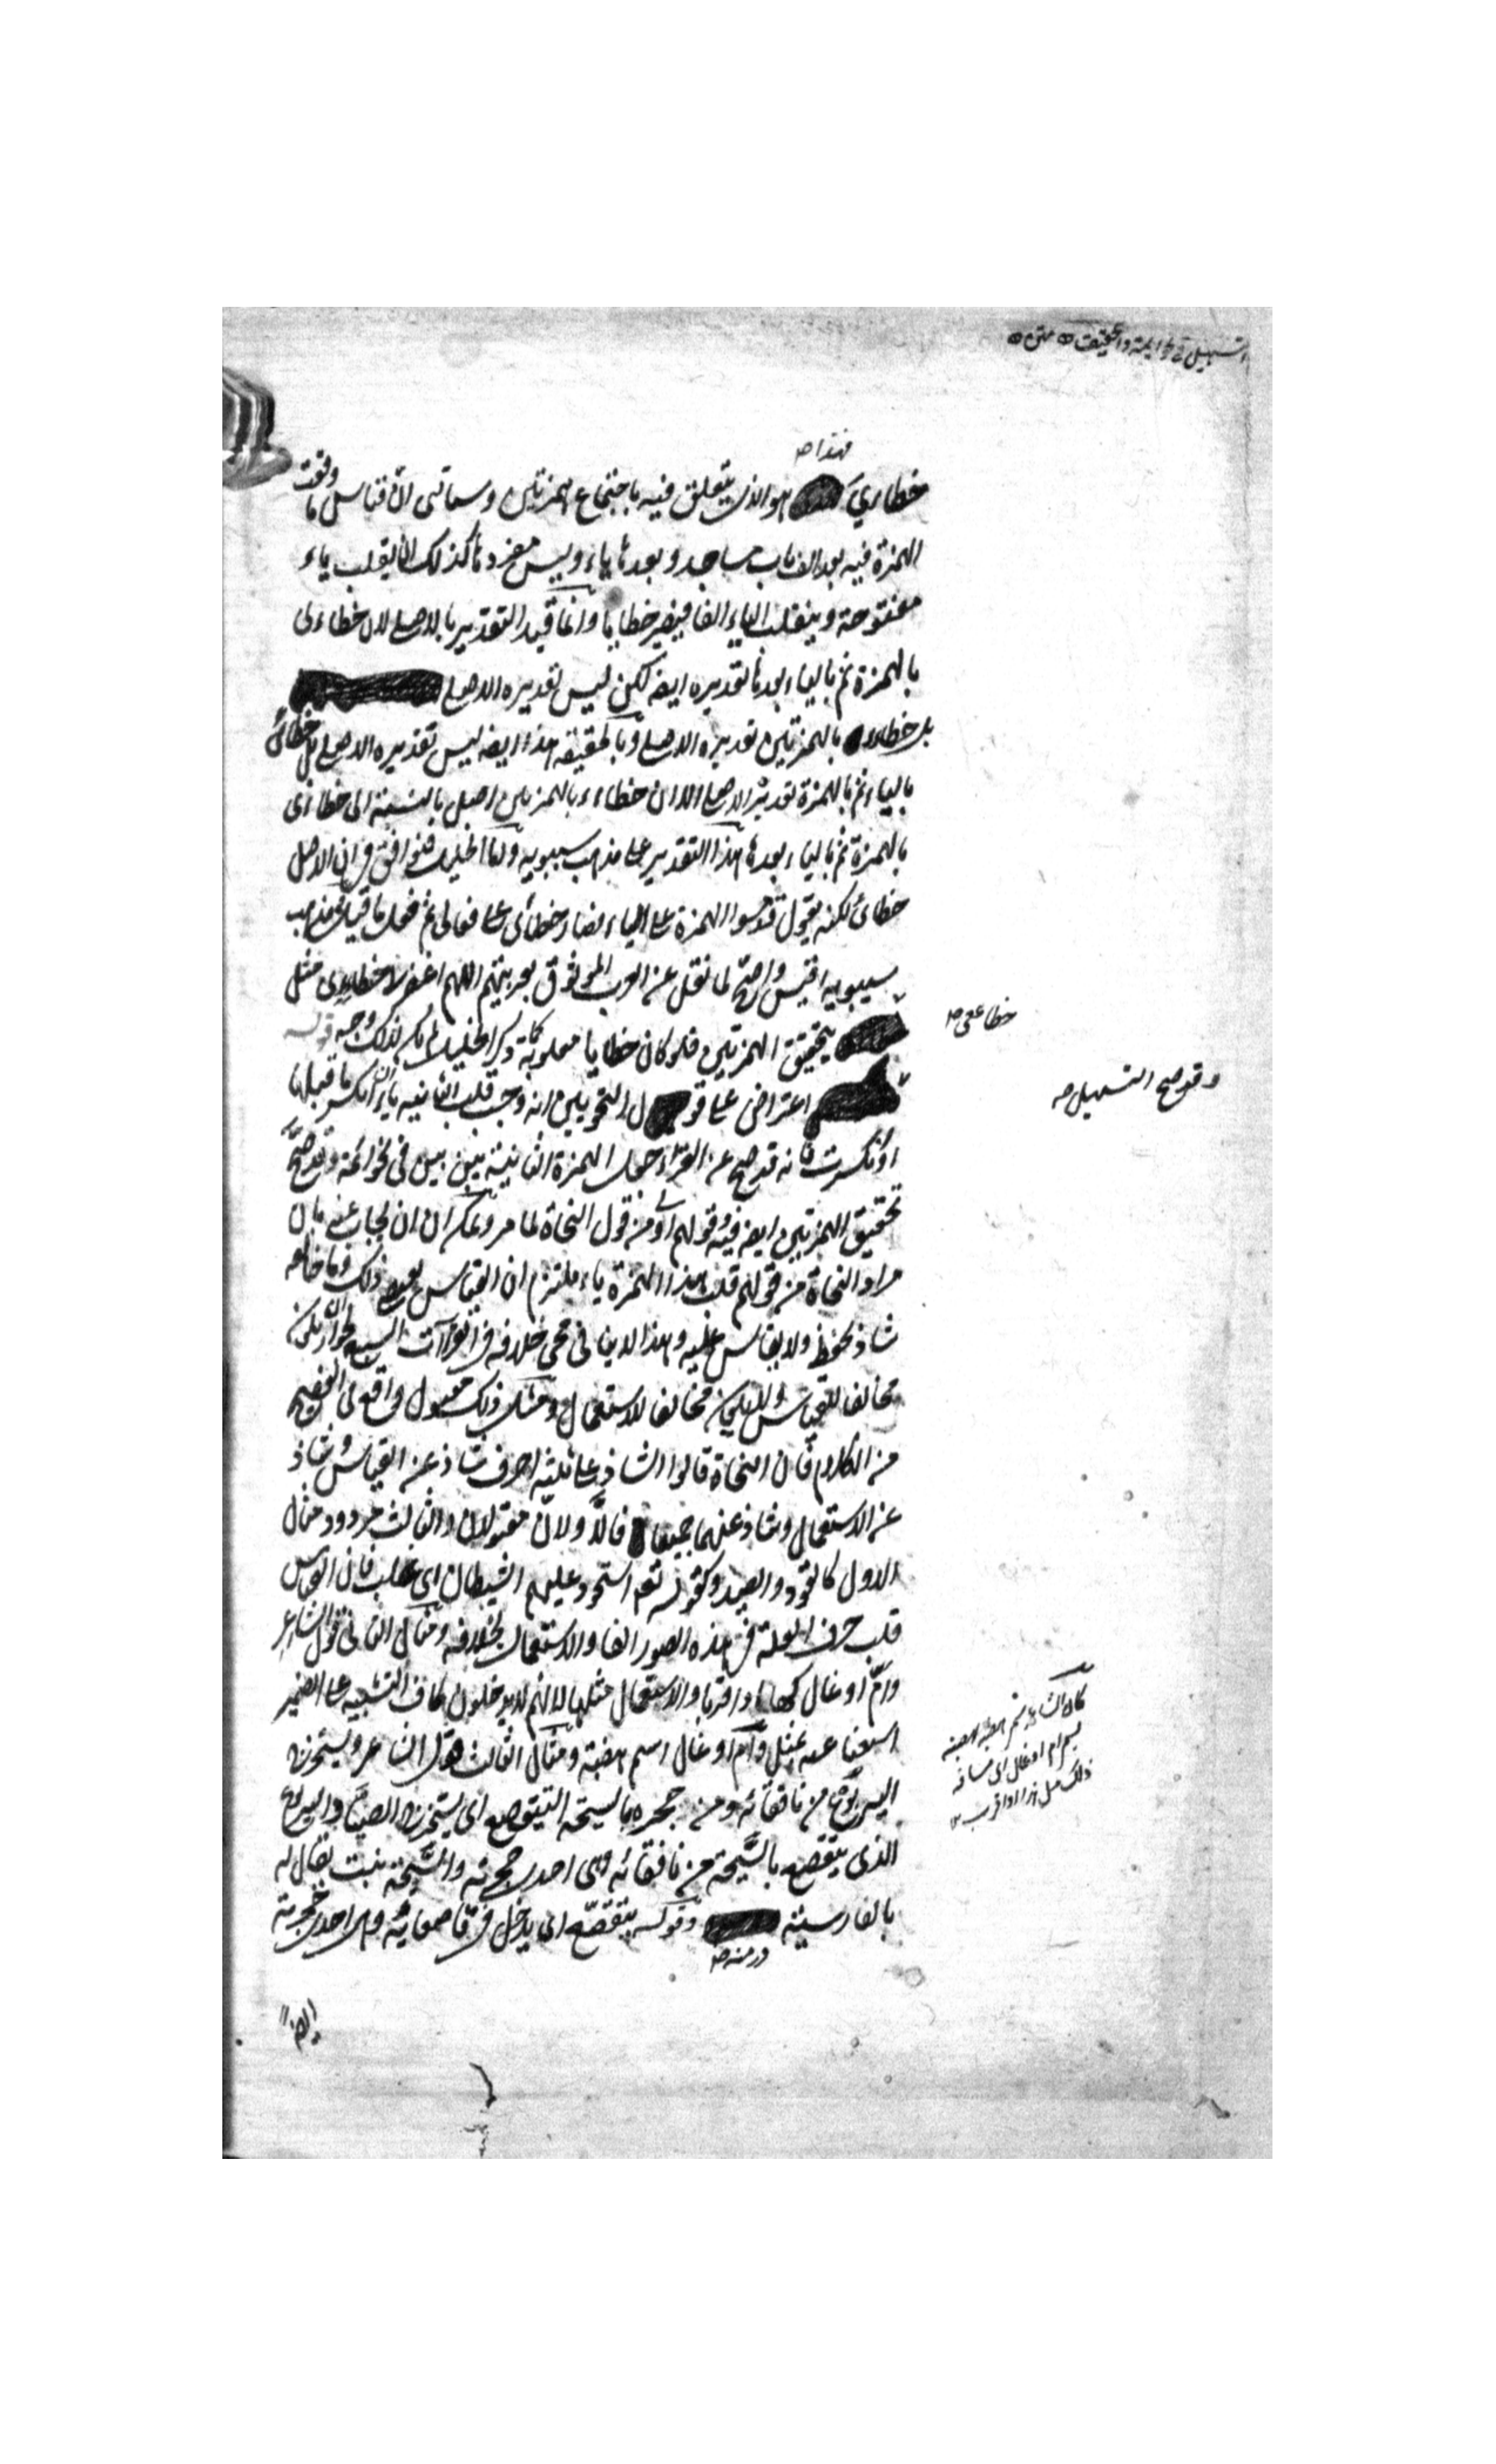 التسهيل في نحو ايمة والتحقيق متن
فهذا صح
خطاءى هو الذى يتعلق فيه باجتماع همزتين وسياتى ان قياس ما وقعت
الهمزة فيه بعد الف باب مساجد وبعدها ياء وليس مفردها كذلك ان يقلب ياء
مفتوحة وينقلب الياء الفا فيصير خطايا وانما قيد التقدير بالاصلى لان خطاءى
بالهمزة ثم بالياء بعدها تقديره ايضا لكن ليس تقديره الاصلى
بل خطاءء بالهمزتين تقديره الاصلى وبالحقيقة هذا ايضا ليس تقديره الاصلى بل خطائ
بالياء ثم بالهمزة تقديره الاصلى الا ان خطاءء بالهمزتين اصل بالنسبة الى خطاءى
بالهمزة ثم بالياء بعدها هذا التقدير على مذهب سيبويه واما الخليل فيوافق فى ان الاصل
خطائ لكنه يقول قدموا الهمزة على الياء فصار خطاءى على فعالى ثم فعل ما قيل ومذهب
سيبويه اقيس واصح لما نقل عن العرب الموثوق بعربيتهم اللهم اغفر لى خطاءى مثل
خطاععى صح
بتحقيق الهمزتين فلو كان خطايا مقلوبة كما ذكر الخليل لم يكن لذلك وجه قوله
وقد صح التسهيل صح
اعتراض على قول النحويين انه وجب قلب الثانية ياء ان انكسر ما قبلها
او انكسرت فانه قد صح عن القراء جعل الهمزة الثانية بين بين فى نحو ائمة وقد صح
تحقيق الهمزتين ايضا فيه وقولهم اولى من قول النحاة لما مر ويمكن ان يجاب عنه بان
مراد النحاة من قولهم قلب هذا الهمزة ياء ملتزم ان القياس يقتضى ذلك وما خالفه
شاذ يحفظ ولا يقاس عليه وهذا لا ينافى مجئ خلافه فى القراآت السبع لجواز ان يكون
مخالفا للقياس ولا يكون مخالفا للاستعمال ومثل ذلك مقبول واقع فى الفصيح
من الكلام فان النحاة قالوا الشاذ على ثلثة اضرف شاذ عن القياس وشاذ
عن الاستعمال وشاذ عنهما جميعا فالاولان مقبولان والثالث مردود مثال
الاول كالقود والصيد وكقوله تعه استحوذ عليهم الشيطان اى غلب فان القياس
قلب حرف العلة فى هذه الصور الفا والاستعمال بخلافه ومثال الثانى قول الشاعر
وام اوعال كها او اقربا والاستعمال مثلها لانهم لا يدخلون كاف التشبيه على الضمير
استغناء عنه بمثل وام اوعال اسم هضبة ومثال الثالث قول الشاعر ويستخرج
اليربوع من نافقائه ومن جحره بالشيحة اليتقصع اى يستخرج الصياد اليربوع
الذى يتقصع بالشيحة من نافقائه وهى احدى جحرته والشيحة نبت يقال له
بالفارسية درمنه صح وقوله يتقصع اى يدخل فى قاصعائه وهى احدى جحرته
ايضا